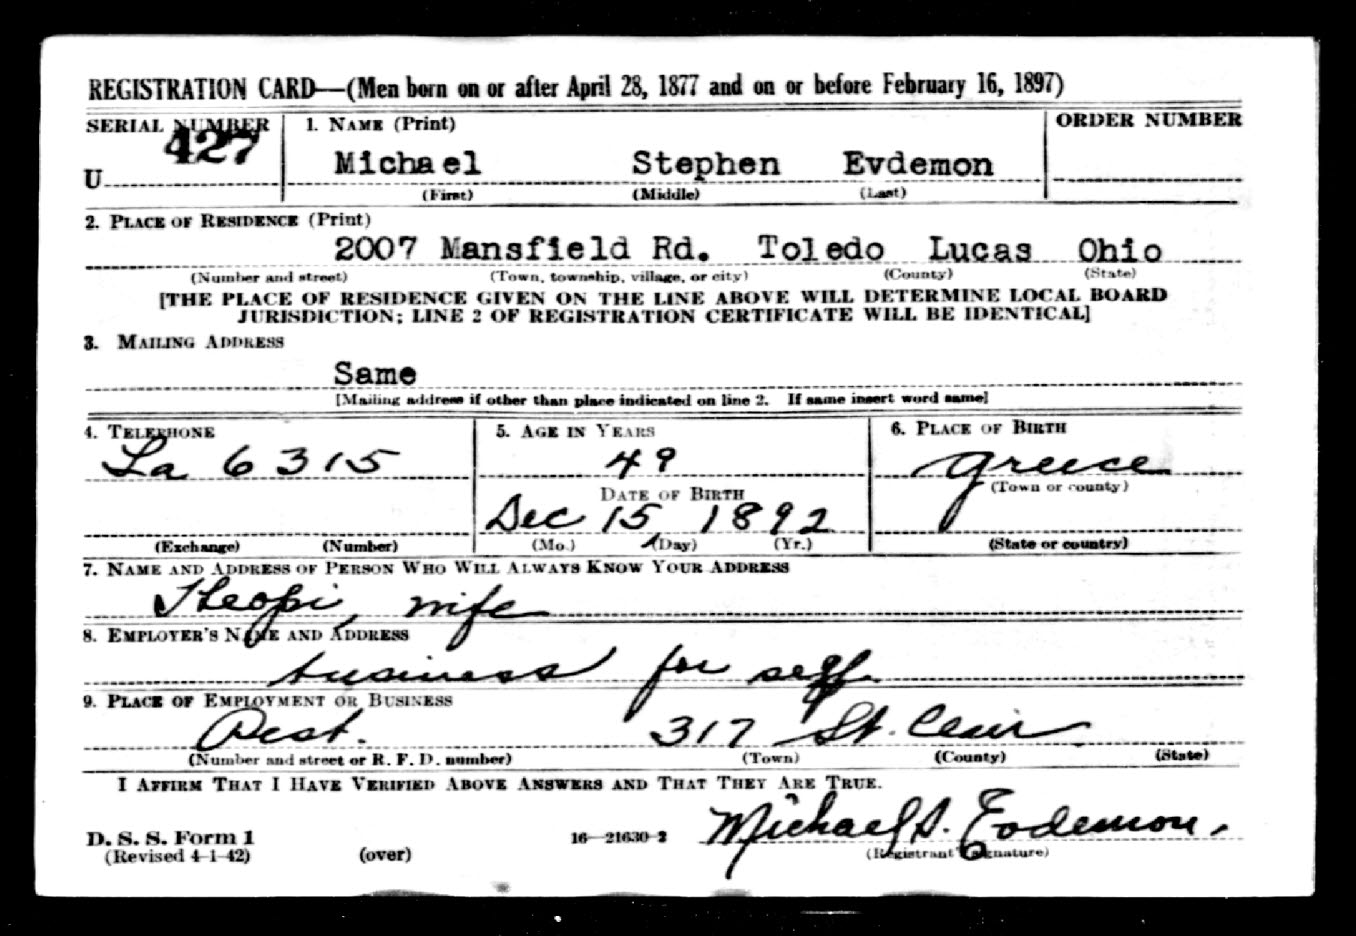 REGISTRATION CARD—(Men born on or after April 28, 1877 and on or before February 16, 1897)
SERIAL NUMBER 1. NAME (Print) ORDER NUMBER
U 427 Michael Stephen Evdemon
(First) (Middle) (Last)
2. PLACE OF RESIDENCE (Print)
2007 Mansfield Rd. Toledo Lucas Ohio
(Number and street) (Town, township, village, or city) (County) (State)
[THE PLACE OF RESIDENCE GIVEN ON THE LINE ABOVE WILL DETERMINE LOCAL BOARD
JURISDICTION; LINE 2 OF REGISTRATION CERTIFICATE WILL BE IDENTICAL]
3. MAILING ADDRESS
Same
[Mailing address if other than place indicated on line 2. If same insert word same]
4. TELEPHONE 5. AGE IN YEARS 6. PLACE OF BIRTH
La 6315 49 Greece
(Town or county)
DATE OF BIRTH
Dec 15 1892
(Exchange) (Number) (Mo.) (Day) (Yr.) (State or country)
7. NAME AND ADDRESS OF PERSON WHO WILL ALWAYS KNOW YOUR ADDRESS
Theopi, wife
8. EMPLOYER'S NAME AND ADDRESS
business for self.
9. PLACE OF EMPLOYMENT OR BUSINESS
Rest. 317 St. Clair
(Number and street or R. F. D. number) (Town) (County) (State)
I AFFIRM THAT I HAVE VERIFIED ABOVE ANSWERS AND THAT THEY ARE TRUE.
D. S. S. Form 1 16—21630-2 Michael S. Evdemon.
(Revised 4-1-42) (over) (Registrant's signature)